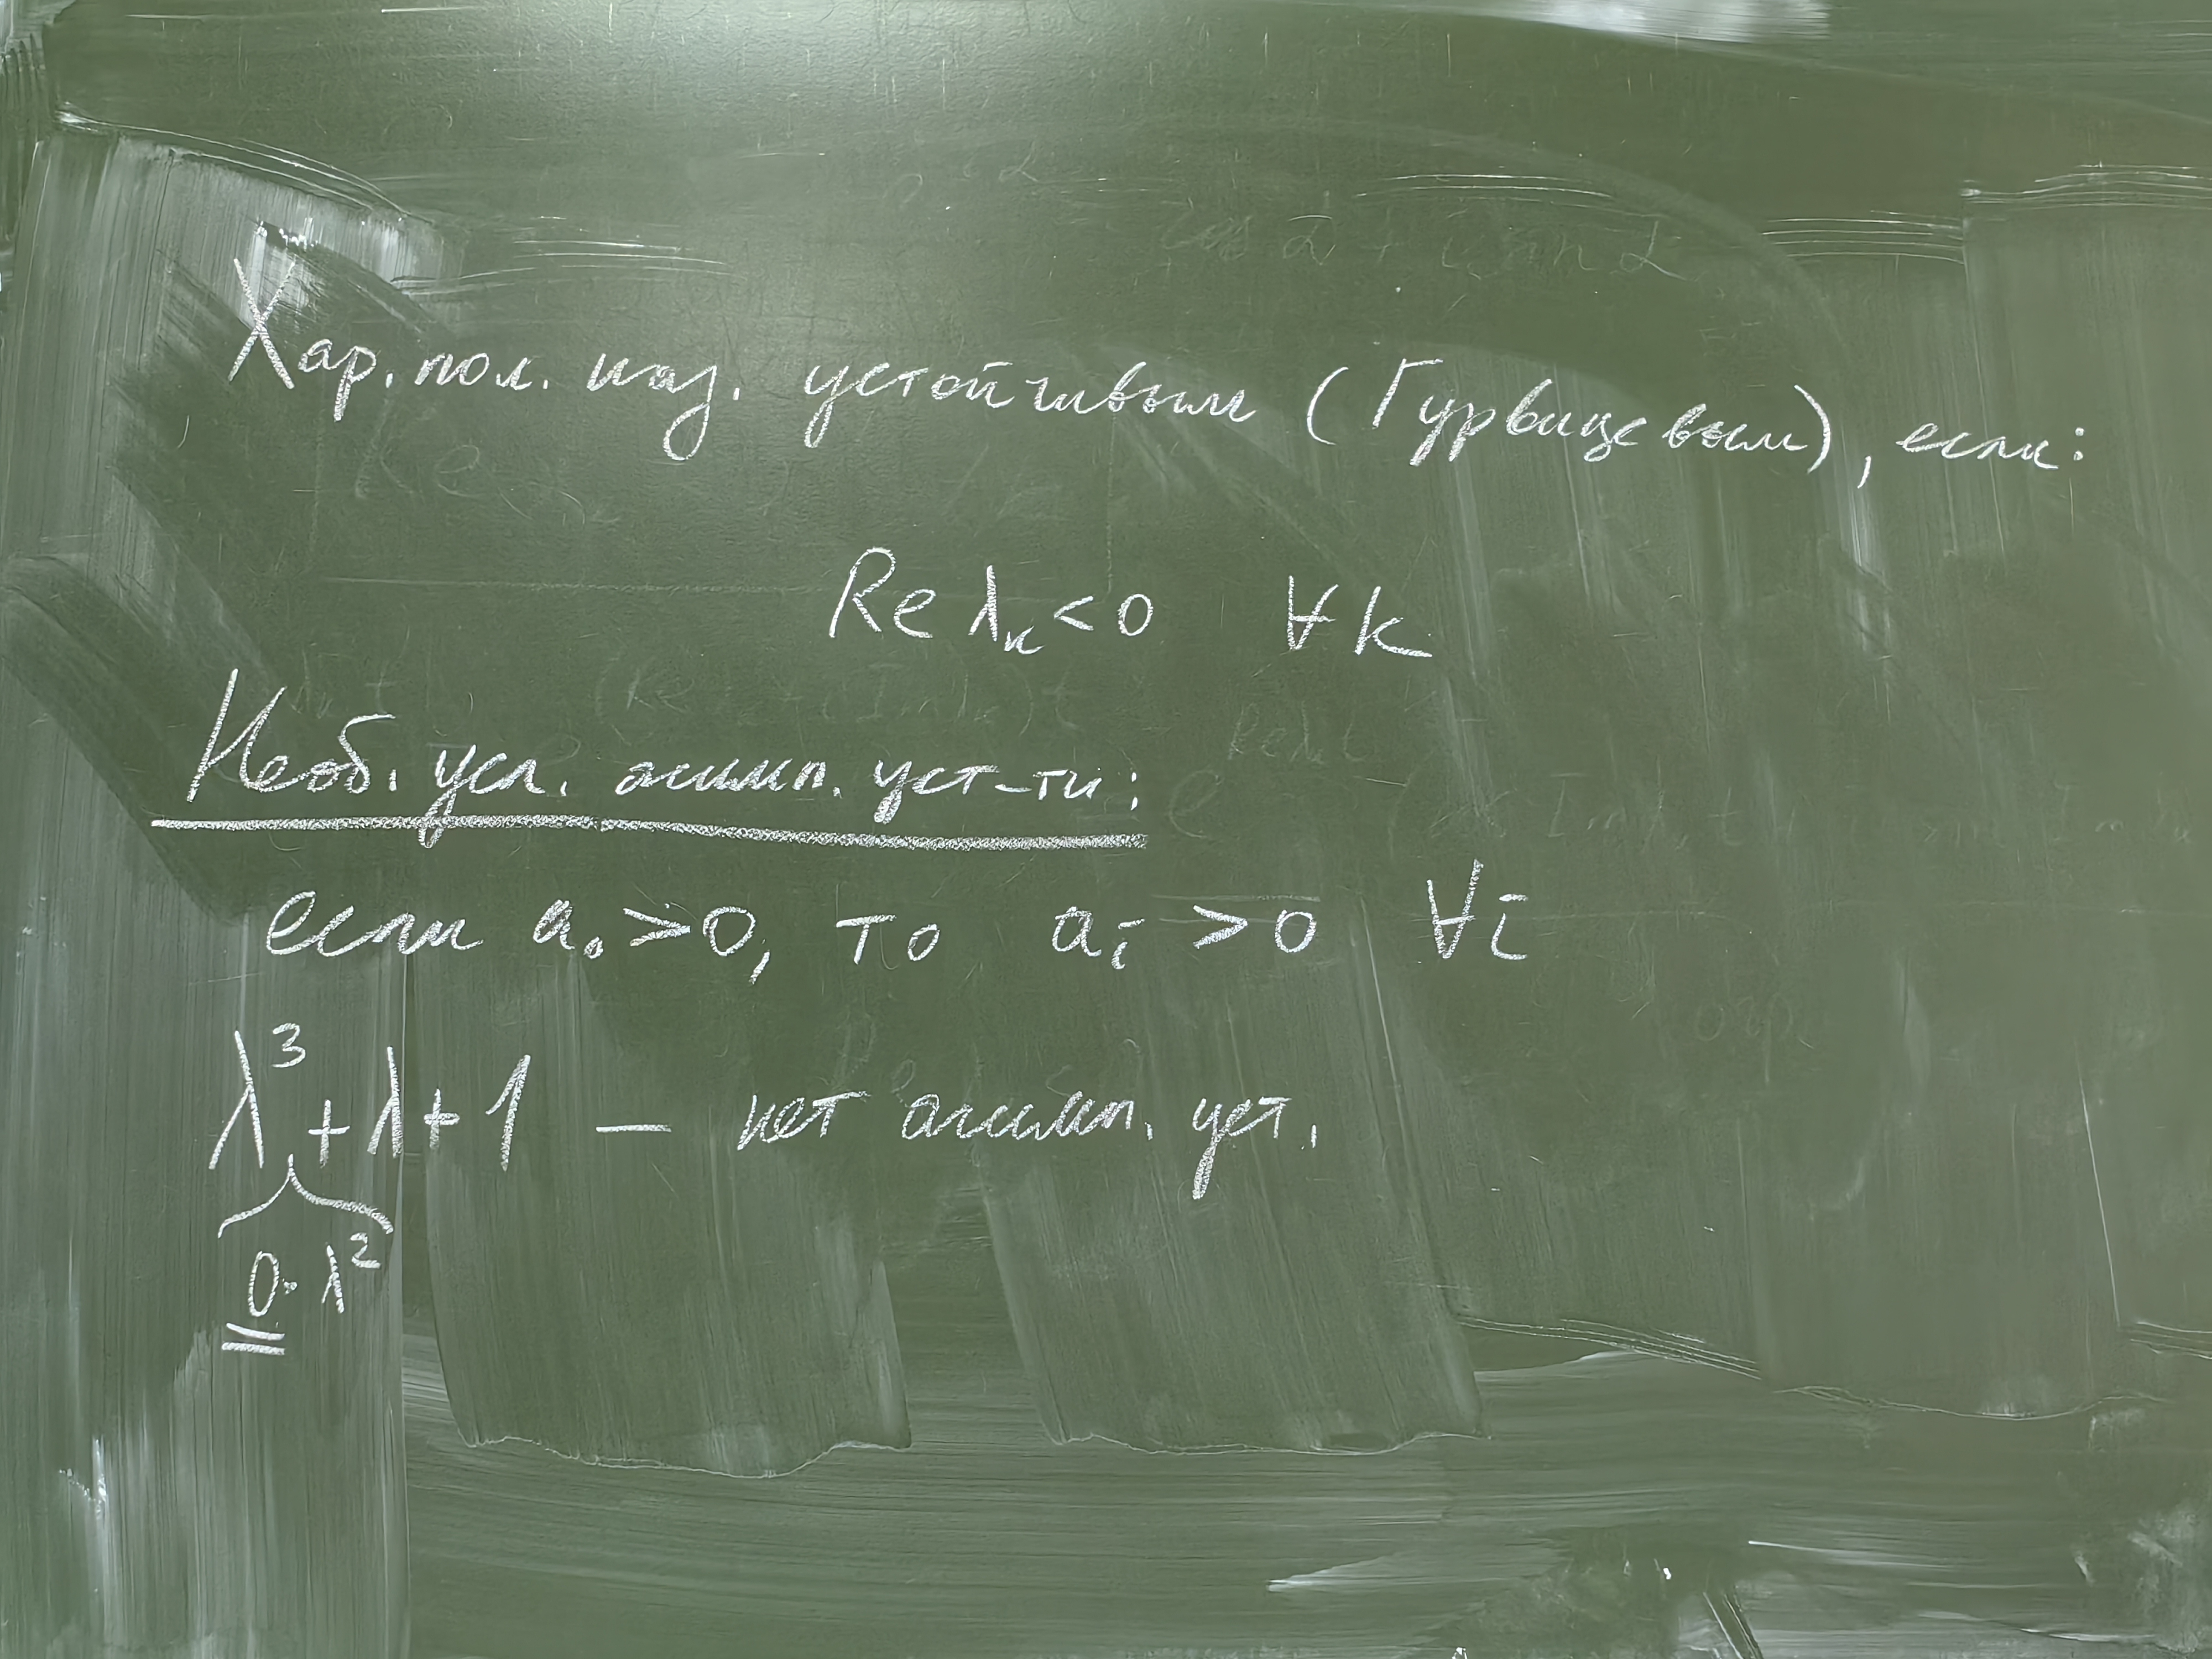 Хар. пол. наз. устойчивым (Гурвицевым), если:
Re λₖ < 0 ∀ k
Необ. усл. асимп. уст-ти:
если a₀ > 0, то aᵢ > 0 ∀i
λ³ + λ + 1 — нет асимп. уст.
0 · λ²